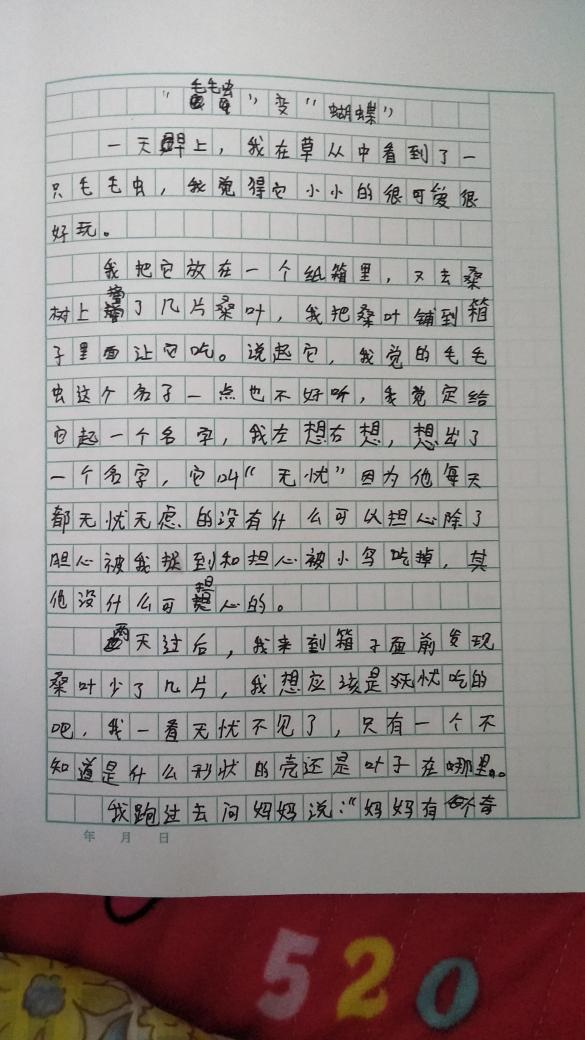 "毛毛虫"变"蝴蝶"
一天早上，我在草从中看到了一
只毛毛虫，我觉得它小小的很可爱很
好玩。
我把它放在一个纸箱里，又去桑
树上了几片桑叶，我把桑叶铺到箱
子里面让它吃。说起它，我觉的毛毛
虫这个名子一点也不好听，我觉定给
它起一个名字，我左想右想，想出了
一个名字，它叫"无忧"因为他每天
都无忧无虑的没有什么可以担心除了
胆心被我捉到和担心被小鸟吃掉，其
他没什么可心的。
两天过后，我来到箱子面前发现
桑叶少了几片，我想应该是无忧吃的
吧，我一看无忧不见了，只有一个不
知道是什么形状的壳还是叶子在哪里。
我跑过去问妈妈说："妈妈有个奇
年 月 日
520